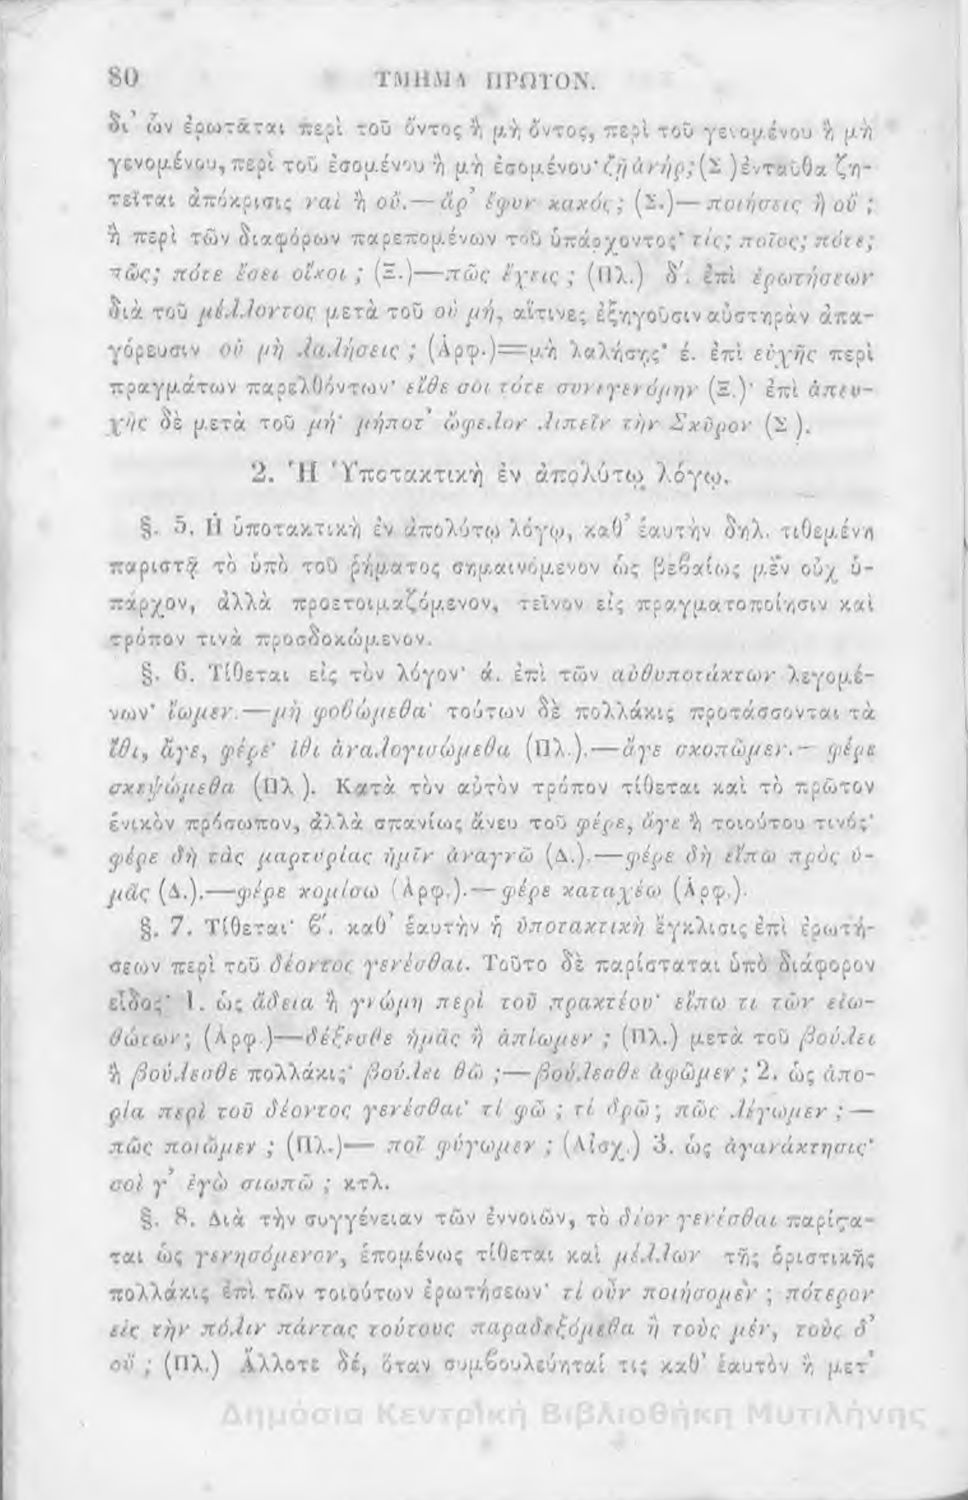 80 ΤΜΗΜΑ ΠΡΩΤΟΝ.
δι' ὧν ἐρωτᾶται περὶ τοῦ ὄντος ἢ μὴ ὄντος, περὶ τοῦ γενομένου ἢ μὴ
γενομένου, περὶ τοῦ ἐσομένου ἢ μὴ ἐσομένου· ζῇ ἁνήρ; (Σ.) ἐνταῦθα ζη-
τεῖται ἀπόκρισις ναὶ ἢ οὔ.— ἆρ' ἔφυν κακός; (Σ.)— ποιήσεις ἢ οὔ ;
ἢ περὶ τῶν διαφόρων παρεπομένων τοῦ ὑπάρχοντος· τίς; ποῖος; πότε;
πῶς; πότε ἔσει οἴκοι ; (Ξ.)—πῶς ἔχεις ; (Πλ.) δ'. ἐπὶ ἐρωτήσεων
διὰ τοῦ μέλλοντος μετὰ τοῦ οὐ μή, αἵτινες ἐξηγοῦσιν αὐστηρὰν ἀπα-
γόρευσιν οὐ μὴ λαλήσεις ; (Ἀρφ.)=μὴ λαλήσῃς· έ. ἐπὶ εὐχῆς περὶ
πραγμάτων παρελθόντων· εἴθε σοι τότε συνεγενόμην (Ξ.)· ἐπὶ ἀπευ-
χῆς δὲ μετὰ τοῦ μή· μήποτ' ὤφελον λιπεῖν τὴν Σκῦρον (Σ.).
2. Ἡ Ὑποτακτικὴ ἐν ἀπολύτῳ λόγῳ.
§. 5. Ἡ ὑποτακτικὴ ἐν ἀπολύτῳ λόγῳ, καθ' ἑαυτὴν δηλ. τιθεμένη
παριστᾷ τὸ ὑπὸ τοῦ ῥήματος σημαινόμενον ὡς βεβαίως μὲν οὐχ ὑ-
πάρχον, ἀλλὰ προετοιμαζόμενον, τεῖνον εἰς πραγματοποίησιν καὶ
τρόπον τινὰ προσδοκώμενον.
§. 6. Τίθεται εἰς τὸν λόγον· ά. ἐπὶ τῶν αὐθυποτάκτων λεγομέ-
νων· ἴωμεν.—μὴ φοβώμεθα· τούτων δὲ πολλάκις προτάσσονται τὰ
ἴθι, ἄγε, φέρε· ἴθι ἀναλογισώμεθα (Πλ.).—ἄγε σκοπῶμεν.— φέρε
σκεψώμεθα (Πλ.). Κατὰ τὸν αὐτὸν τρόπον τίθεται καὶ τὸ πρῶτον
ἑνικὸν πρόσωπον, ἀλλὰ σπανίως ἄνευ τοῦ φέρε, ἄγε ἢ τοιούτου τινός·
φέρε δὴ τὰς μαρτυρίας ἡμῖν ἀναγνῶ (Δ.).—φέρε δὴ εἴπω πρὸς ὑ-
μᾶς (Δ.).—φέρε κομίσω (Ἀρφ.).—φέρε καταχέω (Ἀρφ.).
§. 7. Τίθεται· β'. καθ' ἑαυτὴν ἡ ὑποτακτικὴ ἔγκλισις ἐπὶ ἐρωτή-
σεων περὶ τοῦ δέοντος γενέσθαι. Τοῦτο δὲ παρίσταται ὑπὸ διάφορον
εἶδος· 1. ὡς ἄδεια ἢ γνώμη περὶ τοῦ πρακτέου· εἴπω τι τῶν εἰω-
θότων; (Ἀρφ.)—δέξεσθε ἡμᾶς ἢ ἀπίωμεν ; (Πλ.) μετὰ τοῦ βούλει
ἢ βούλεσθε πολλάκις· βούλει θῶ ;—βούλεσθε ἀφῶμεν ; 2. ὡς ἀπο-
ρία περὶ τοῦ δέοντος γενέσθαι· τί φῶ ; τί δρῶ; πῶς λέγωμεν ; —
πῶς ποιῶμεν ; (Πλ.)— ποῖ φύγωμεν ; (Αἰσχ.) 3. ὡς ἀγανάκτησις·
σοὶ γ' ἐγὼ σιωπῶ ; κτλ.
§. 8. Διὰ τὴν συγγένειαν τῶν ἐννοιῶν, τὸ δέον γενέσθαι παρίστα-
ται ὡς γενησόμενον, ἑπομένως τίθεται καὶ μέλλων τῆς ὁριστικῆς
πολλάκις ἐπὶ τῶν τοιούτων ἐρωτήσεων· τί οὖν ποιήσομεν ; πότερον
εἰς τὴν πόλιν πάντας τούτους παραδεξόμεθα ἢ τοὺς μέν, τοὺς δ'
οὔ ; (Πλ.) Ἄλλοτε δέ, ὅταν συμβουλεύηταί τις καθ' ἑαυτὸν ἢ μετ'
Δημόσια Κεντρική Βιβλιοθήκη Μυτιλήνης